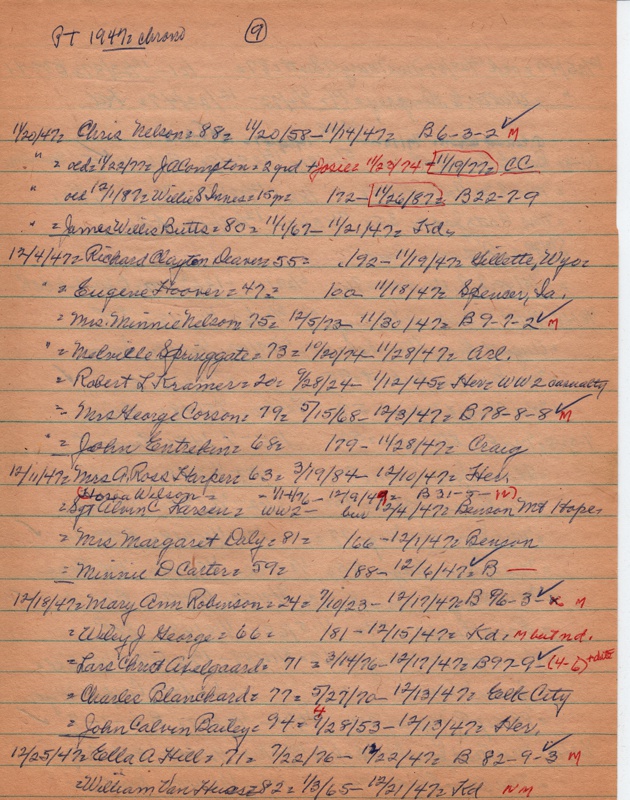 PT 1947= chrono 9
11/20/47= Chris Nelson= 88= 11/20/58-11/14/47= B6-3-2 ✓ M
" = oed= 11/22/77= JACompton= 2grd + Josie= 11/23/74 - 11/19/77= CC
" oed 12/1/87= Willie S Innes= 15pm 172- 11/26/87= B22-7-9
" = James Willis Butts= 80= 11/1/67- 11/21/47= Kd=
12/4/47= Richard Clayton Deaver= 55= 192- 11/19/47= Gillette, Wyo=
" = Eugene Hoover= 47= 100 11/18/47= Spencer, Ia.
= Mrs. Minnie Nelson= 75= 12/5/73- 11/30/47= B 9-7-2 ✓ M
" = Melville Springgate= 73= 10/20/74- 11/28/47= Arl.
= Robert L Kramer= 20= 9/28/24- 1/12/45= Her= WW2 casualty
= Mrs George Corson= 79= 5/15/68- 12/3/47= B78-8-8 ✓ M
" = John Entrekin= 68= 179- 11/28/47= Craig
12/11/47= Mrs A. Ross Harper= 63= 3/19/84- 12/10/47= Her.
Wilson= - 1/14/76- 12/9/49= B 31-5-
= Sgt Alvin C Larsen= WW2- bur 12/4/47= Benson Mt Hope=
= Mrs. Margaret Daly= 81= 166- 12/1/47= Benson
= Minnie D Carter= 59= 188- 12/6/47= B ✓ —
12/18/47= Mary Ann Robinson= 24= 7/10/23- 12/17/47= B 96-3- ✓ x M
= Wiley J George= 66= 181- 12/15/47= Kd. M but nd.
= Lars Christ Axelgaard= 71= 3/14/76- 12/17/47= B97-9- ✓ (4-6) + date
= Charles Blanchard= 77= 5/27/70- 12/13/47= Elk City
= John Calvin Bailey= 94= 4/28/53- 12/13/47= Her.
12/25/47= Ella A Hill= 71= 7/22/76- 12/22/47= B 82-9-3 ✓ M
= William Van= 82= 1/3/65- 12/21/47= Kd NM